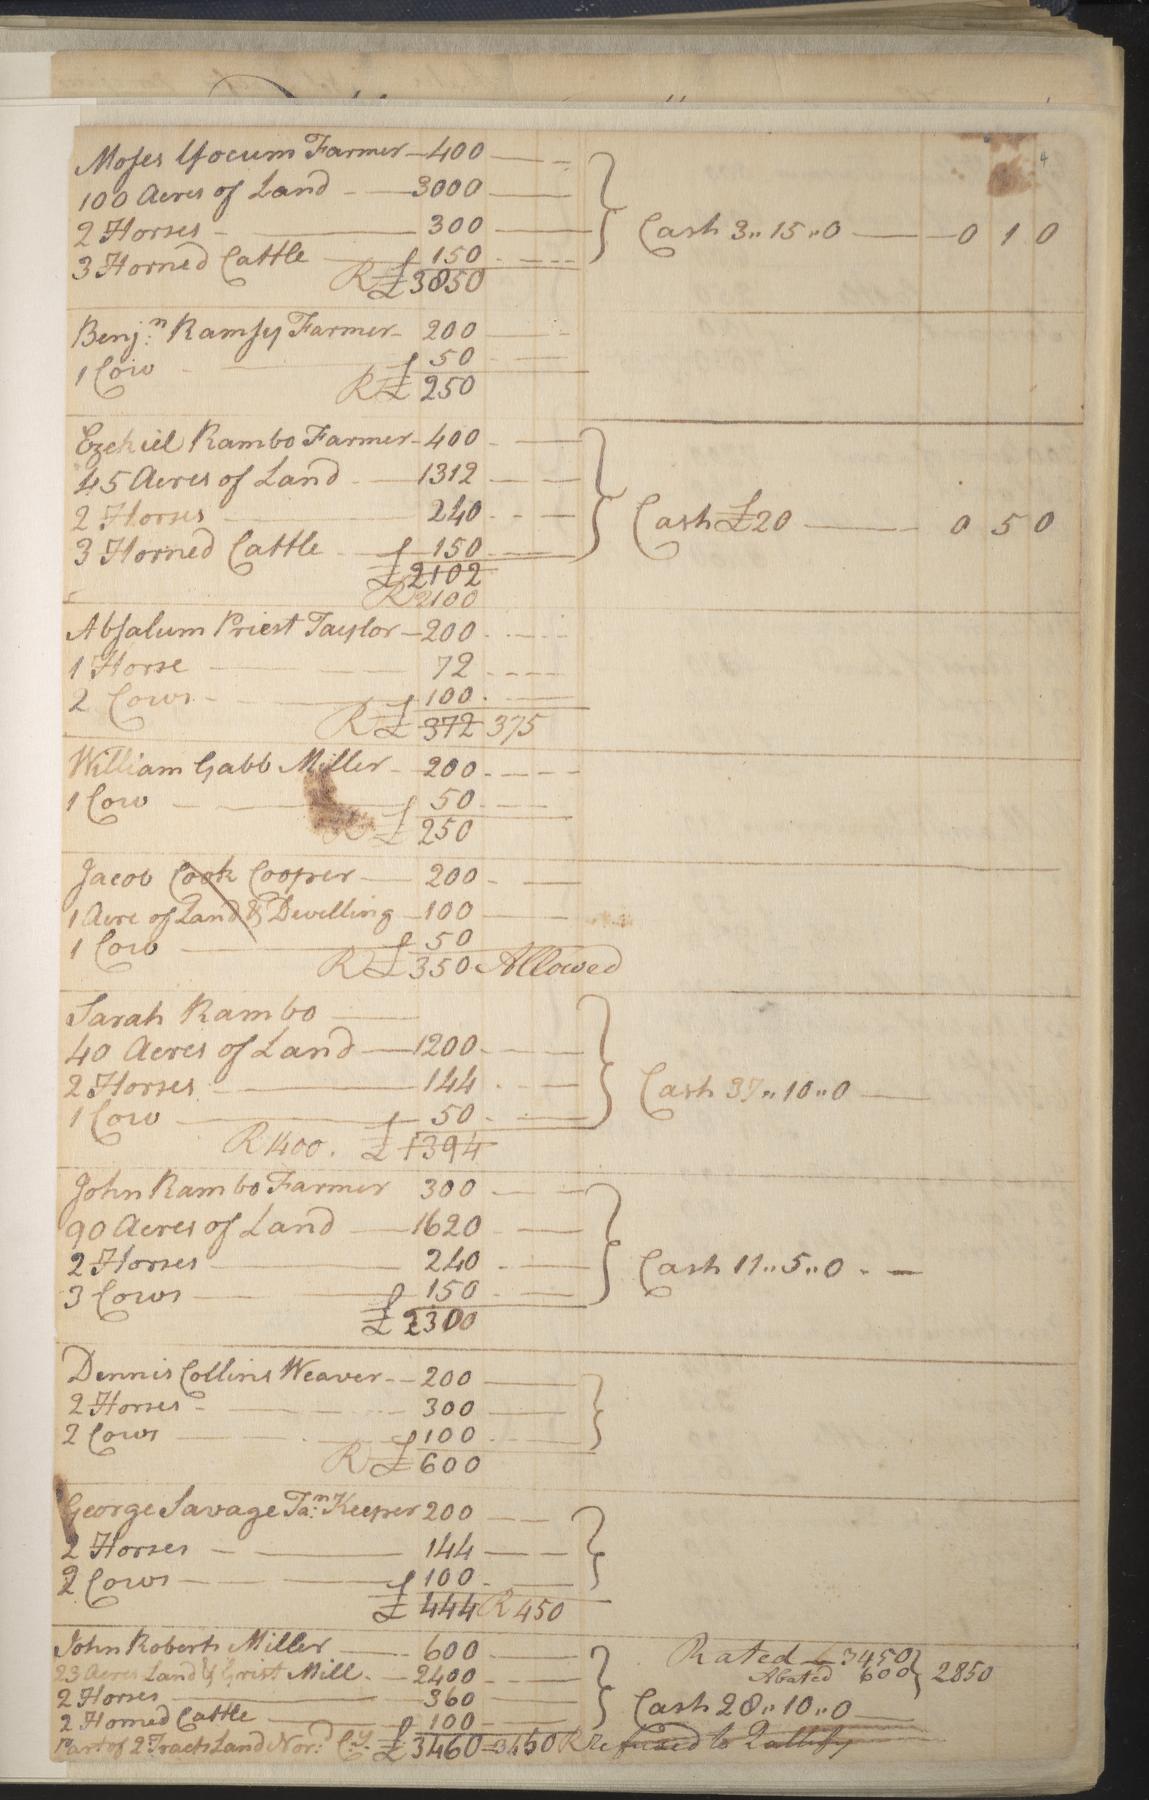 4
Moses Yocum Farmer — 400
100 Acres of Land — 3000
2 Horses — 300
Cash 3,,15,,0 — 0 1 0
3 Horned Cattle — £150
R £3850
Benj:n Ramsy Farmer - 200
1 Cow - £50
R £250
Ezekiel Rambo Farmer - 400
45 Acres of Land - 1312
2 Horses — 240
Cash £20 — 0 5 0
3 Horned Cattle - £150
£2102
R 2100
Absalum Priest Taylor - 200
1 Horse — 72
2 Cows - £100
R £372 375
William Gabb Miller - 200
1 Cow — £50
R £250
Jacob Cook Cooper — 200
1 Acre of Land & Dwelling - 100
1 Cow — £50
R £350 Allowed
Sarah Rambo —
40 Acres of Land — 1200
2 Horses — 144
Cash 37,,10,,0 —
1 Cow — £50
R 1400. £1394
John Rambo Farmer 300
90 Acres of Land — 1620
2 Horses — 240
Cash 11,,5,,0 - —
3 Cows — £150
£2300
Dennis Collins Weaver - 200
2 Horses - 300
2 Cows — £100
R £600
George Savage Ta:n Keeper 200
2 Horses — 144
2 Cows — £100
£444 R 450
John Roberts Miller — 600
Rated £3450
23 Acres Land & Grist Mill - 2400
Abated 600 } 2850
2 Horses — 360
Cash 28,,10,,0 —
2 Horned Cattle — £100
Part of 2 Tracts Land Nor:d C:y £3460 3450 R refused to Qallify